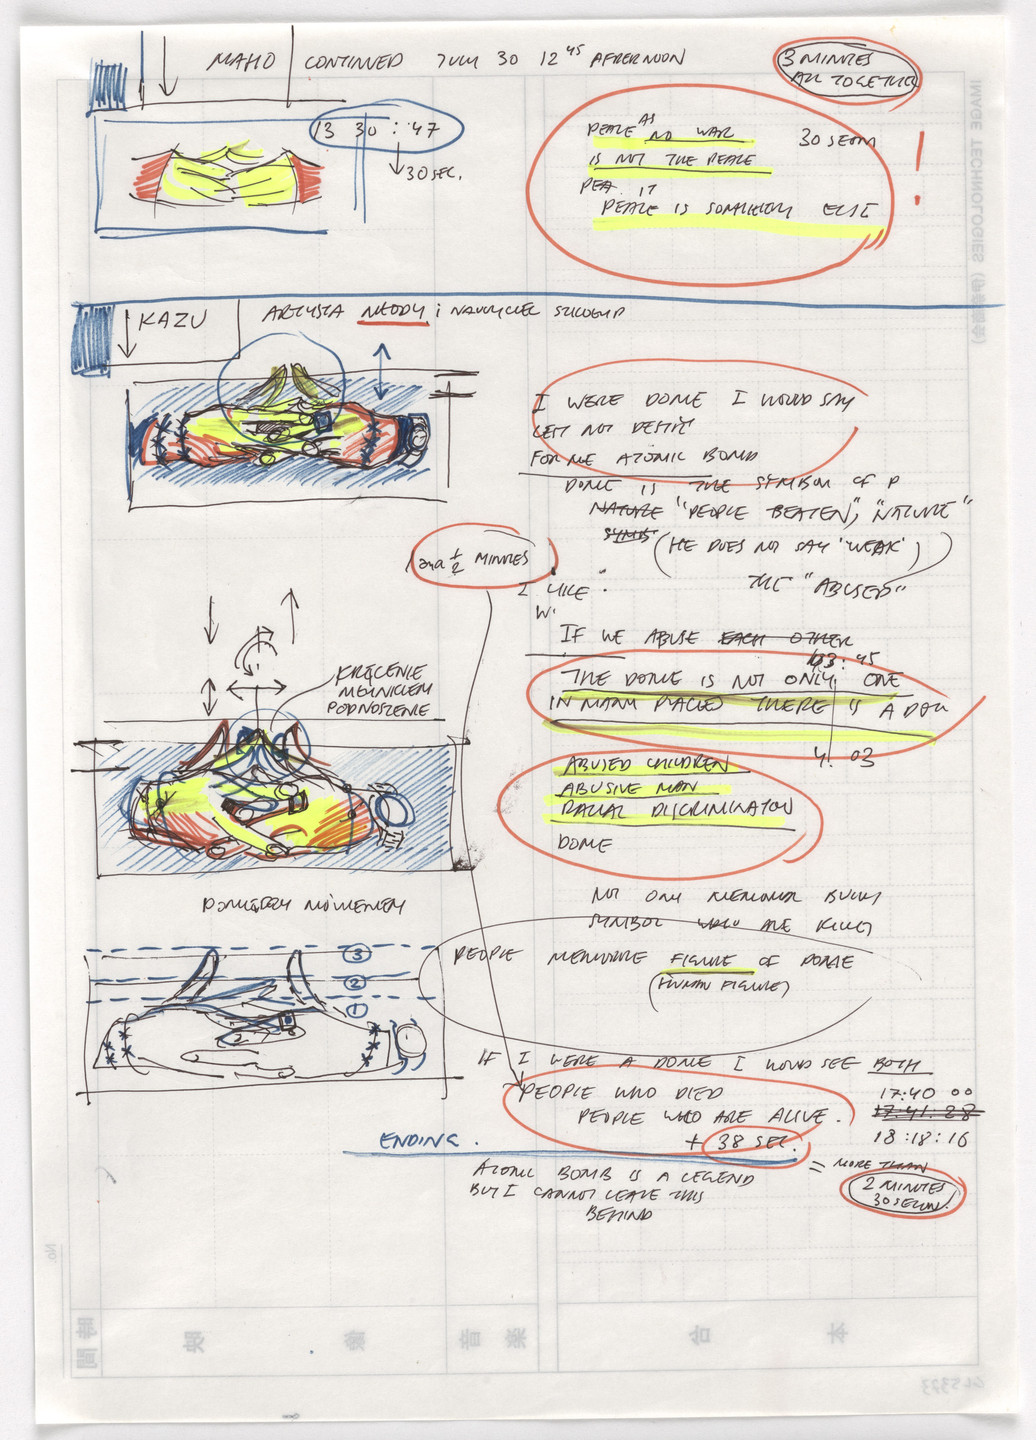 MAHO
CONTINUED JULY 30 12 45 AFTERNOON
3 MINUTES
ALL TOGETHER
13 30 : 47
30 SEC.
PEACE AS NO WAR
30 SECON
IS NOT THE PEACE
PEA. IT
PEACE IS SOMETHING ELSE
!
KAZU
ARTYSTA MŁODY i NAUCZYCIEL
I WERE DOME I WOULD SAY
LETS NOT
FOR ME ATOMIC BOMB
DOME IS THE SYMBOL OF P
NATURE "PEOPLE BEATEN", "NATURE"
SYMB (HE DOES NOT SAY 'WEAK')
THE "ABUSED"
2 and 1/2 MINUTES
I LIKE
W'
IF WE ABUSE EACH OTHER
03:45
THE DOME IS NOT ONLY ONE
IN MANY PLACES THERE IS A DOM
4. 03
KRĘCENIE
MŁYNKIEM
PODNOSZENIE
ABUSED CHILDREN
ABUSIVE MAN
RACIAL DISCRIMINATION
DOME
POMIĘDZY MÓWIENIEM
NOT ONLY MEMORIAL
SYMBOL WHO ARE KILLED
3
2
1
PEOPLE MEMORIZE FIGURE OF DOME
(HUMAN FIGURE)
IF I WERE A DOME I WOULD SEE BOTH
PEOPLE WHO DIED
PEOPLE WHO ARE ALIVE.
17:40 00
17:41:28
18:18:16
+ 38 SEC.
ENDING.
= MORE THAN
2 MINUTES
30 SECON.
ATOMIC BOMB IS A LEGEND
BUT I CANNOT LEAVE THIS
BEHIND
IMAGE TECHNOLOGIES
No.
音楽
台本